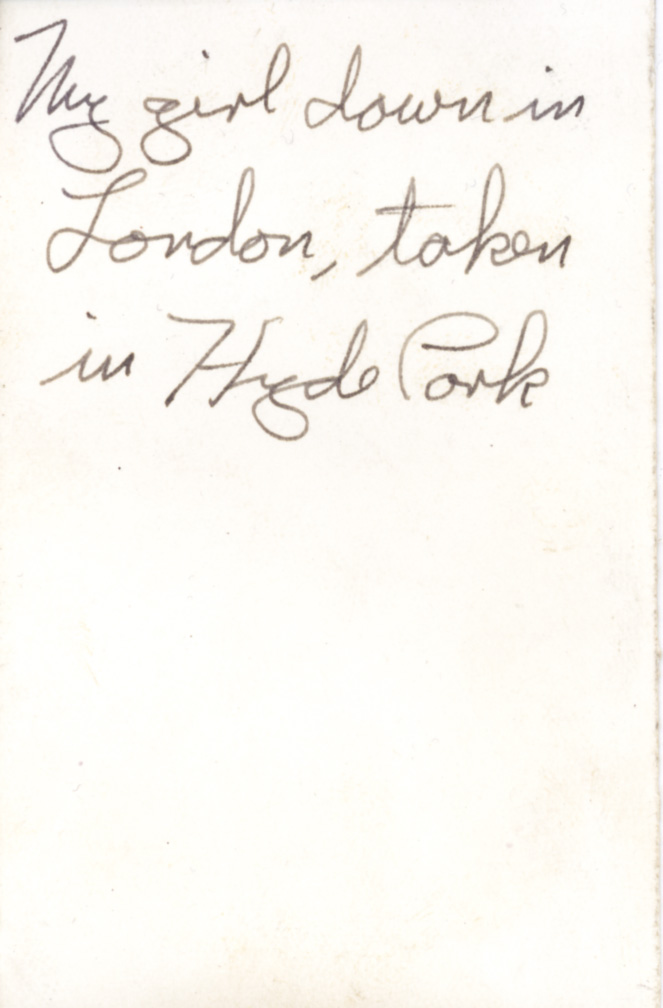 My girl down in
London, taken
in Hyde Park